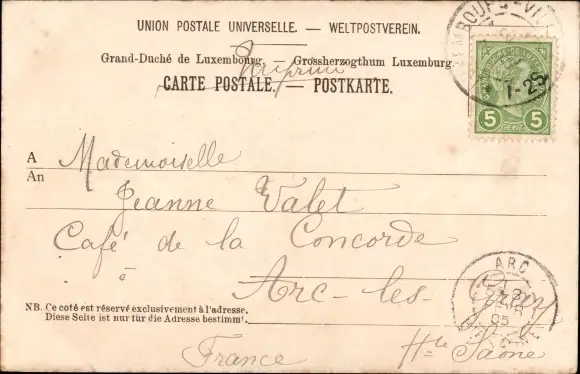 UNION POSTALE UNIVERSELLE. — WELTPOSTVEREIN.
Grand-Duché de Luxembourg. — Grossherzogthum Luxemburg.
Imprimé
CARTE POSTALE. — POSTKARTE.
LUXEMBOURG-VILLE
7-8
5 5
A Mademoiselle
An Jeanne Valet
Café de la Concorde
à Arc-les-Gray
ARC
NB. Ce coté est réservé exclusivement à l'adresse.
Diese Seite ist nur für die Adresse bestimmt.
France Hte Saône